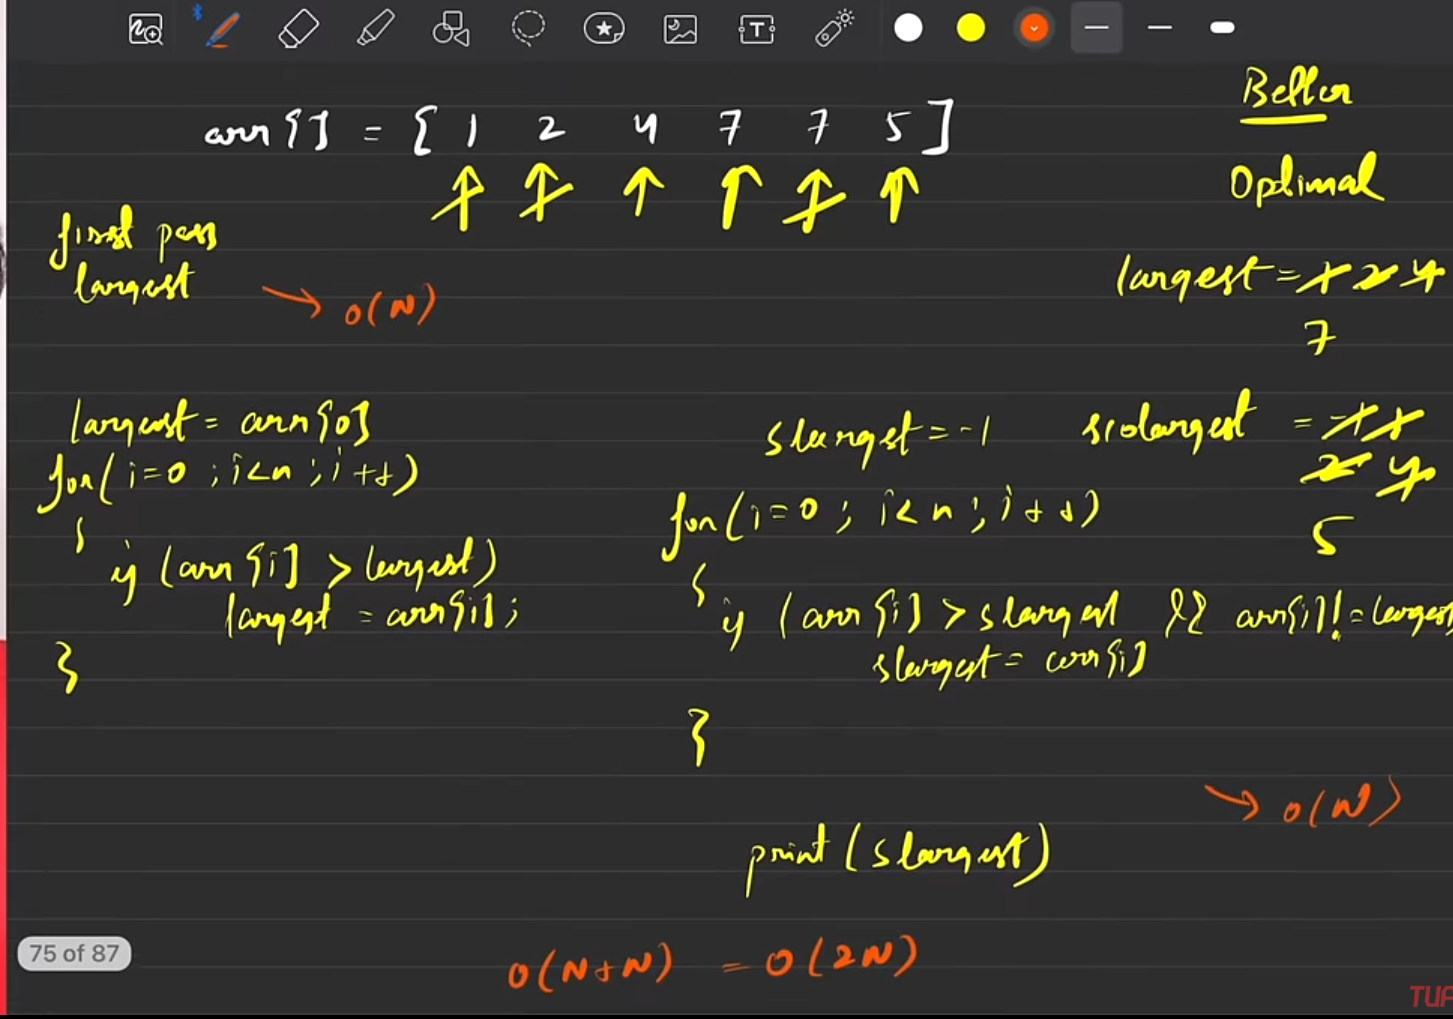 Better
arr[] = [ 1 2 4 7 7 5 ]
Optimal
first pass
largest
→ O(N)
largest = 1 2 4
7
largest = arr[0]
for(i=0 ; i<n ; i++)
{
if (arr[i] > largest)
largest = arr[i];
}
slargest = -1
slargest = -1 1
2 4
5
for(i=0 ; i<n ; i++)
{
if (arr[i] > slargest && arr[i] != largest
slargest = arr[i]
}
→ O(N)
print(slargest)
75 of 87
O(N+N) = O(2N)
TUF